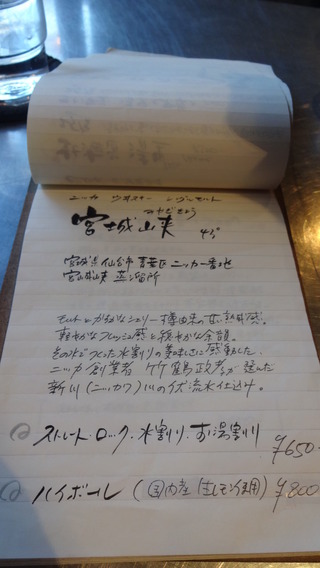 ニッカ ウヰスキー シングルモルト
みやぎきょう
宮城峡 45°
宮城県仙台市青葉区ニッカ番地
宮城峡 蒸溜所
モルトとかすかなシェリー樽由来の甘い熟成感。
軽やかなフレッシュ感と穏やかな余韻。
その水でつくった水割りの美味しさに感動した、
ニッカ創業者 竹鶴政孝が選んだ
新川(ニッカワ)川の伏流水仕込み。
ストレート・ロック・水割り・お湯割り ¥650-
ハイボール (国内産 生レモン使用) ¥800